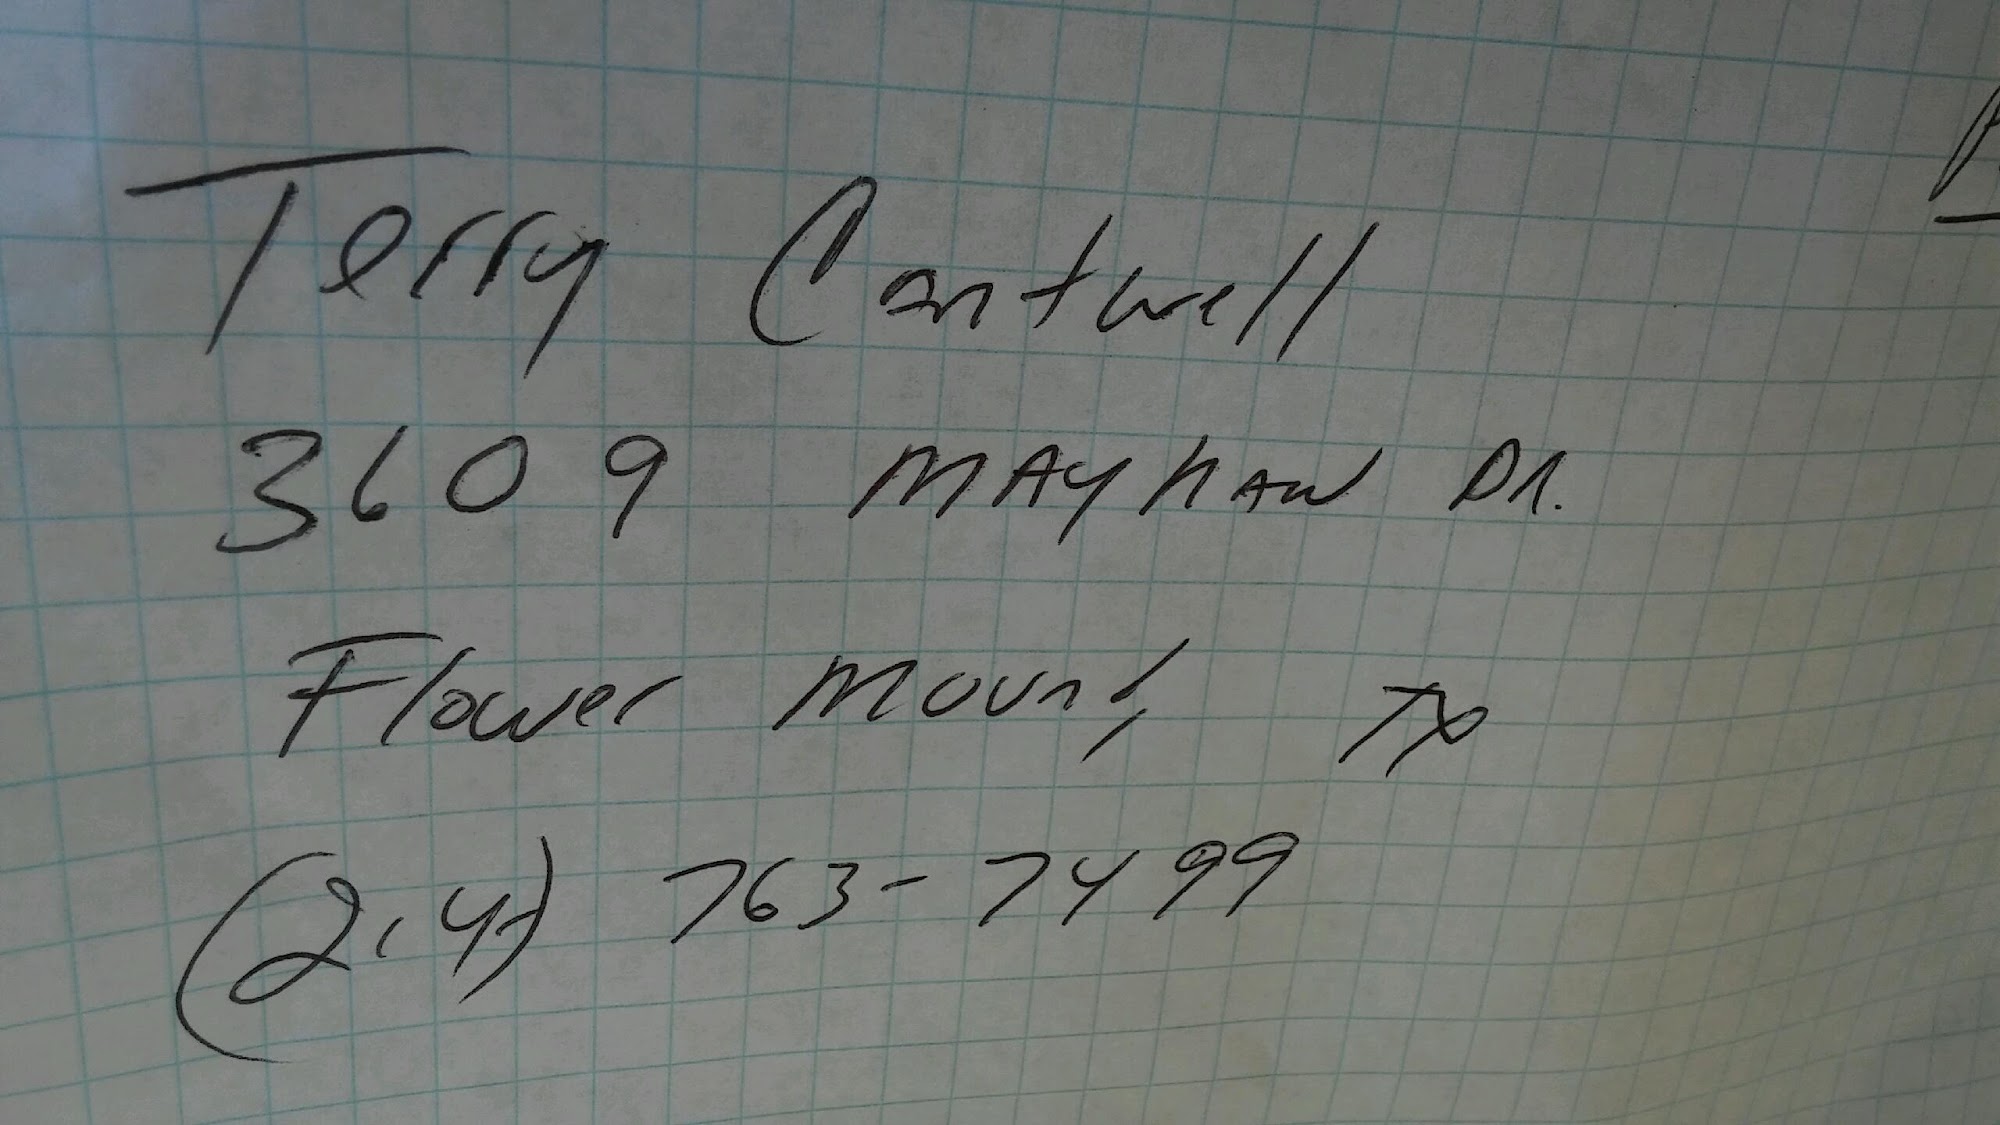 Terry Cantwell
3609 MAYHAW DR.
Flower Mound, TX
(214) 763-7499